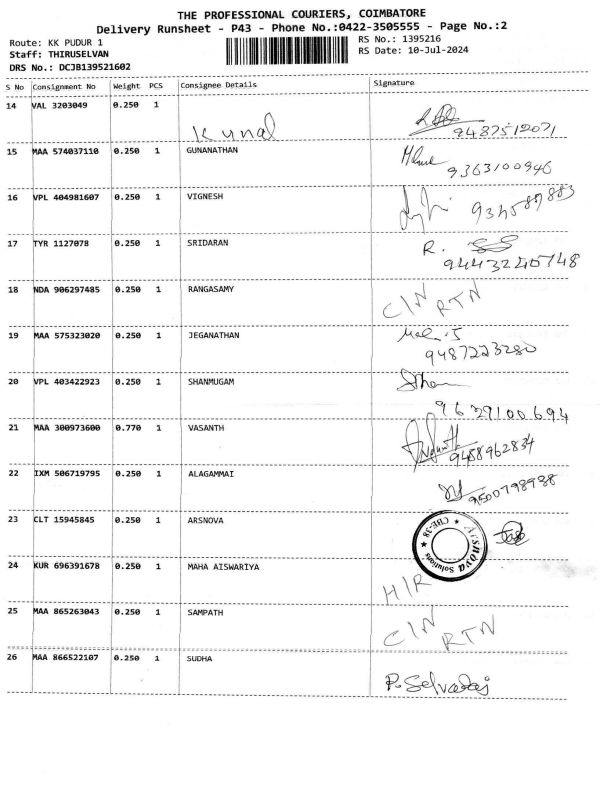 THE PROFESSIONAL COURIERS, COIMBATORE
Delivery Runsheet - P43 - Phone No.:0422-3505555 - Page No.:2
Route: KK PUDUR 1 RS No.: 1395216
Staff: THIRUSELVAN RS Date: 10-Jul-2024
DRS No.: DCJB139521602
S No Consignment No Weight PCS Consignee Details Signature
14 VAL 3203049 0.250 1
Kunal 9487512071
15 MAA 574037110 0.250 1 GUNANATHAN
9363100946
16 VPL 404981607 0.250 1 VIGNESH
17 TYR 1127078 0.250 1 SRIDARAN R.
9443240748
18 NDA 906297485 0.250 1 RANGASAMY C/N RTN
19 MAA 575323020 0.250 1 JEGANATHAN
9487223280
20 VPL 403422923 0.250 1 SHANMUGAM
9629100694
21 MAA 300973600 0.770 1 VASANTH
9458962834
22 IXM 506719795 0.250 1 ALAGAMMAI
9500798988
23 CLT 15945845 0.250 1 ARSNOVA
Arsnova Solutions * CBE-38 *
24 KUR 696391678 0.250 1 MAHA AISWARIYA
H/R
25 MAA 865263043 0.250 1 SAMPATH C/N RTN
26 MAA 866522107 0.250 1 SUDHA
P. Selvaraj